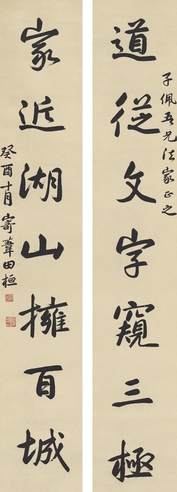 道從文字窺三極
子佩吾兄法家正之
家近湖山擁百城
癸酉十月寄葦田桓